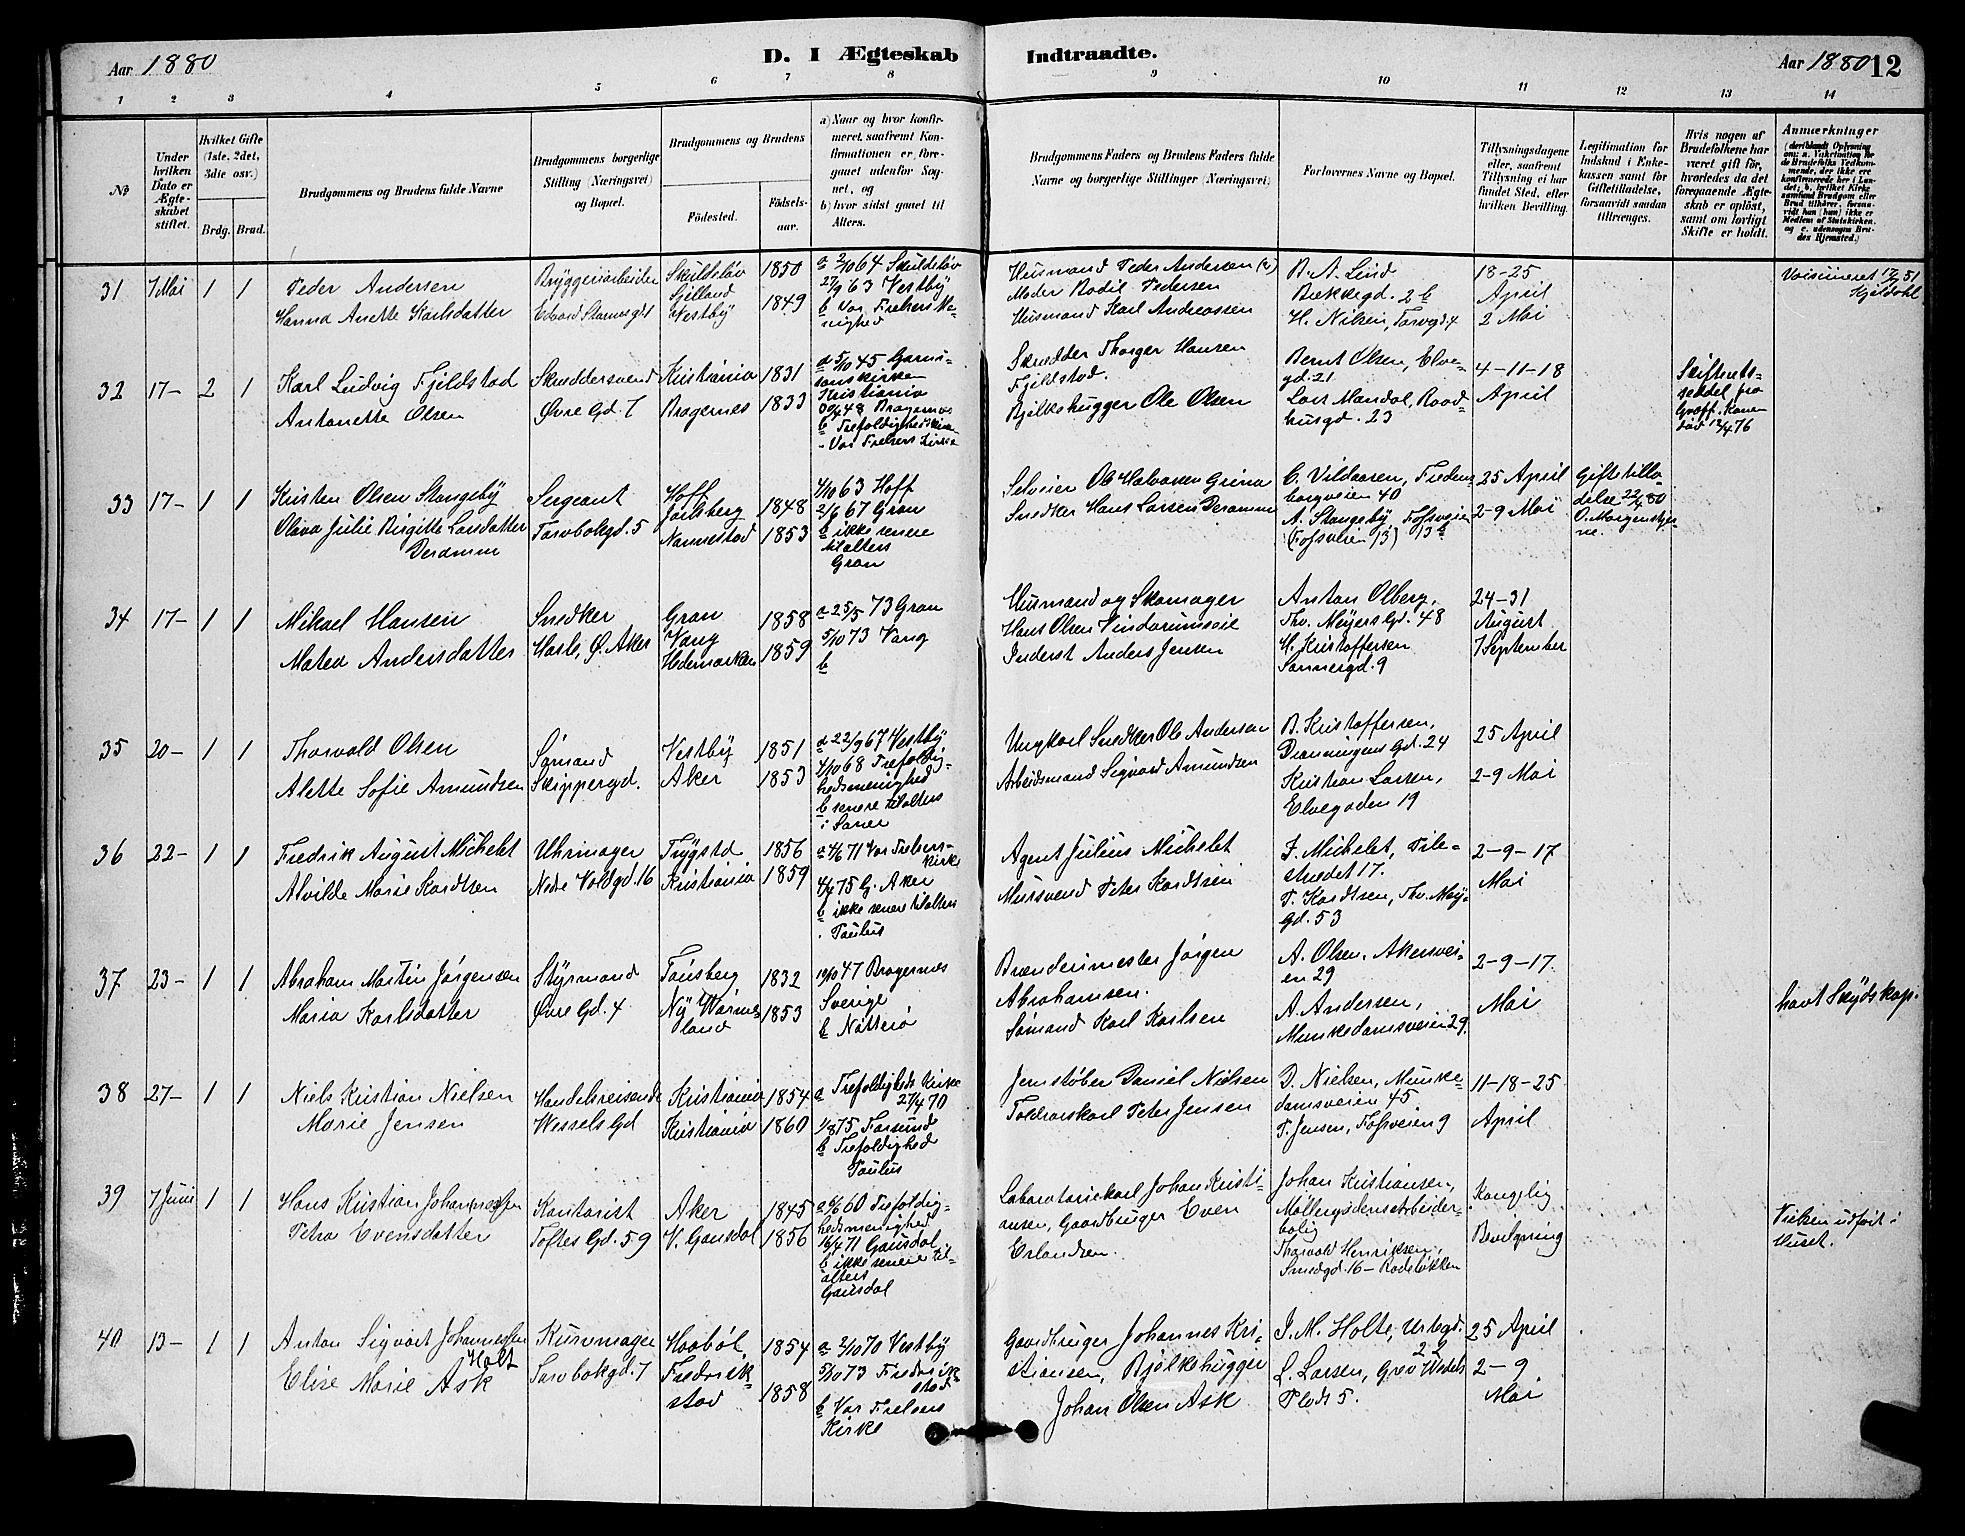 Aar 1880
D. I Ægteskab
Indtraadte.
Aar 1880 12
1 2 3 4 5 6 7 8 9 10 11 12 13 14
No
Under hvilken Dato er Ægteskabet stiftet.
Hvilket Gifte (1ste, 2det, 3die osv.)
Brdg. Brud.
Brudgommens og Brudens fulde Navne
Brudgommens borgerlige Stilling (Næringsvei) og Bopæl.
Brudgommens og Brudens
Fødested.
Fødselsaar.
a) Naar og hvor konfirmeret, saafremt Konfirmationen er foregaaet udenfor Sognet, og
b) hvor sidst gaaet til Alters.
Brudgommens Faders og Brudens Faders fulde Navne og borgerlige Stillinger (Næringsvei)
Forlovernes Navne og Bopæl.
Tillysningsdagene eller, saafremt Tillysning ei har fundet Sted, efter hvilken Bevilling.
Legitimation for Indskud i Enkekassen samt for Giftetilladelse, forsaavidt saadan tiltrænges.
Hvis nogen af Brudefolkene har været gift før, hvorledes da det foregaaende Ægteskab er opløst, samt om lovligt Skifte er holdt.
Anmærkninger
31 7 Mai 1 1
Peder Andersen
Hanna Anette Karlsdatter
Bryggeriarbeider
Edvard Stormsgd
Skuldeløv
Sjelland
Vestby
1850
1849
a 2/10 64 Skuldeløv
27/9 63 Vestby
b Vor Frelsers Menighed
Husmand Peder Andersen
Moder Bodil Pedersen
Husmand Karl Andreassen
B. A. Lind
Bækkegd. 2 b
H. Nilsen, Torvgd 4
18-25
April
2 Mai
Kjeldahl
32 17- 2 1
Karl Ludvig Fjeldstad
Antonette Olsen
Skræddersvend
Øvre Gd. 7
Kristiania
Bragernes
1831
1833
a 5/10 45 Garnisonskirken
Kristiania
48 Bragernes
b Trefoldighedskirken
- Vor Frelsers Kirke
Skrædder Thorger Hansen
Fjeldstad.
Bjelkehugger Ole Olsen
Bernt Olsen, Elvegd. 21
Lars Mandal, Raadhusgd. 23
4-11-18
April
Skifteretsseddel fra
Kone
død 12/4 76
33 17- 1 1
Kristen Olsen Stangeby
Olava Julie Birgitte Larsdatter
Deramm
Sergeant
Torvbakgd. 5
Hoff
Jarlsberg
Nannestad
1848
1853
4/10 63 Hoff
2/6 67 Gran
b ikke senere
tilalters
Gran
Selveier Ole Halvorsen Grina
Snedker Hans Larsen Deramm
C. Vildaasen, Fredensborgveien 40
A. Stangeby, Fossveien
(Fossveien 13) 13 b
25 April
2-9 Mai
Giftetilladelse 22/4 80
O. Morgenstjerne.
34 17- 1 1
Mikael Hansen
Matea Andersdatter
Snedker
Hasle, Ø. Aker
Gran
Vang
Hedemarken
1858
1859
a 25/5 73 Gran
5/10 73 Vang
b
Husmand og Skomager
Hans Olsen Vindorumseie
Inderst Anders Jensen
Anton Olberg,
Thv. Meyers Gd. 48
H. Kristoffersen
Sannergd. 9
24-31
August
7 September
35 20- 1 1
Thorvald Olsen
Alette Sofie Amundsen
Sømand
Skippergd.
Vestby
Aker
1851
1853
a 22/9 67 Vestby
4/10 68 Trefoldighedsmenighed
b senere tilalters
i Saner
Ungkarl Snedker Ole Andersen
Arbeidsmand Sigvard Amundsen
B. Kristoffersen,
Dronningens Gd. 24
Kristian Larsen,
Elvegaden 19
25 April
2-9 Mai
36 22- 1 1
Fredrik August Michelet
Alvilde Marie Kordtsen
Uhrmager
Nedre Voldgd. 16
Trygstad
Kristiania
1856
1859
a 4/6 71 Vor Frelserskirke
4/4 75 G. Aker
b ikke senere tilalters
. Paulus
Agent Julius Michelet
Mursvend Peter Kordtsen
J. Michelet, Pilestrædet 17.
P. Kordtsen, Thv. Mey.
Gd. 53
2-9-17
Mai
37 23- 1 1
Abraham Martin Jørgensen
Maria Karlsdatter
Styrmand
Øvre Gd. 4
Tønsberg
Ny, Wærmeland
1832
1853
10/10 47 Bragernes
Sverige
b Nøtterø
Brænderimester Jørgen
Abrahamsen.
Sømand Karl Karlsen
A. Olsen, Akersveien 29
A. Andersen,
Munkedamsveien 29.
2-9-17
Mai
havt Skydskop.
38 27- 1 1
Niels Kristian Nielsen
Marie Jensen
Handelsreisende
Wessels Gd
Kristiania
Kristiania
1854
1860
a Trefoldigheds Kirke
27/4 70
1/8 75 Farsund
b Trefoldighed
Paulus
Jernstøber Daniel Nielsen
Toldroerskarl Peter Jensen
D. Nielsen, Munkedamsveien 45
P. Jensen, Fossveien 9
11-18-25
April
39 7 Juni 1 1
Hans Kristian Johannessen
Petra Evensdatter
Kontorist
Toftes Gd. 59
Aker
V. Gausdal
1845
1856
60 Trefoldighedsmenighed
16/4 71 Gausdal
b ikke senere tilalters
Gausdal
Laboratoriekarl Johan Kristiansen, Gaardbruger Even
Erlandsen.
Johan Kristiansen,
Møllergadens Arbeiderbolig
Thorvald Henriksen,
Smedgd. 16 - Rodeløkken
Kongelig
Bevilgning
Vielsen udført i
Huset.
40 13- 1 1
Anton Sigvart Johannessen
Holt
Elise Marie Ask
Kurvmager
Torvbakgd. 7
Haabøl,
Fredrikstad
1854
1858
a 2/10 70 Vestby
5/10 73 Fredrikstad
b Vor Frelsers
Kirke
Gaardbruger Johannes Kristiansen, Bjelkehugger
Johan Olsen Ask
J. M. Holte, Urtegd.
22
L. Larsen, Grev Wedels
Plads 5.
25 April
2-9
Mai